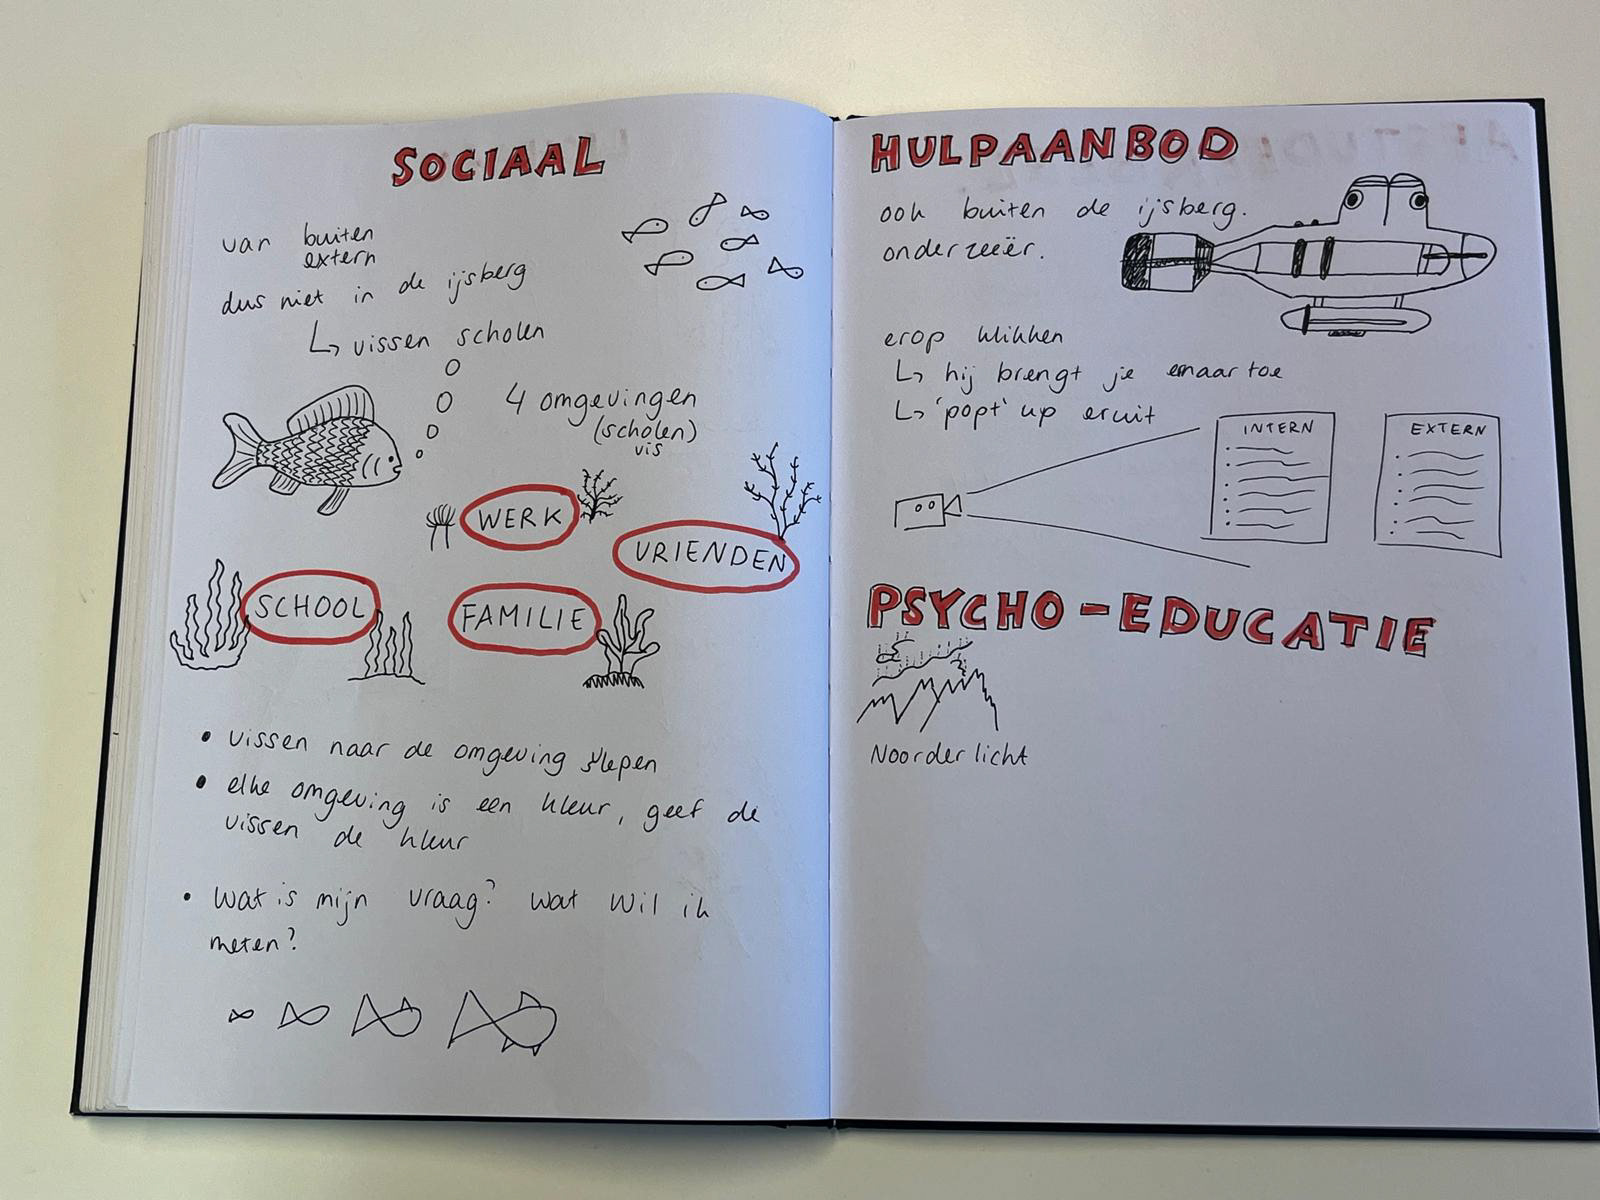 SOCIAAL
van buiten
extern
dus niet in de ijsberg
↳ vissen scholen
4 omgevingen
(scholen)
vis
WERK
VRIENDEN
SCHOOL
FAMILIE
• vissen naar de omgeving slepen
• elke omgeving is een kleur, geef de
vissen de kleur
• wat is mijn vraag? wat wil ik
meten?
HULPAANBOD
ook buiten de ijsberg.
onderzeeër.
erop klikken
↳ hij brengt je ernaar toe
↳ 'popt' up eruit
INTERN
EXTERN
PSYCHO-EDUCATIE
Noorderlicht